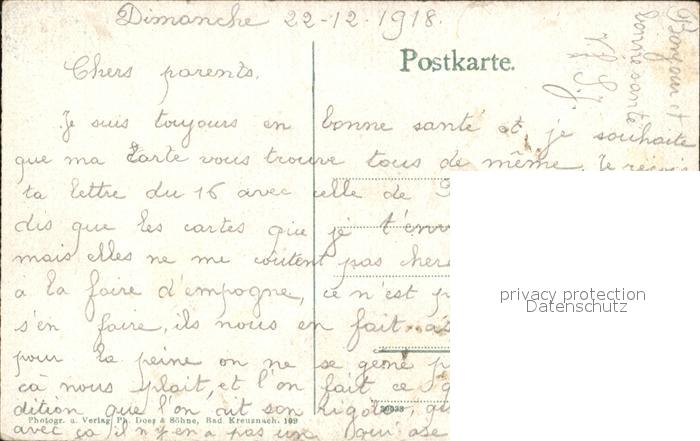 Dimanche 22-12-1918.
Bonjour et
bonne santé
Postkarte.
Chers parents.
Je suis toujours en bonne santé et je souhaite
que ma carte vous trouve tous de même. Je reçois
ta lettre du 16 avec celle de
dis que les cartes que je t'env
mais elles ne me coutent pas cher
a la foire d'empogne, ce n'est p
s'en faire, ils nous en fait as
pour la peine on ne se gene p
ca nous plait, et l'on fait ce q
dition que l'on ait son rigolo, qu
avec ça il n'y en a pas un qui ose
privacy protection
Datenschutz
20033
Photogr. u. Verlag Ph. Does & Söhne, Bad. Kreuznach. 109